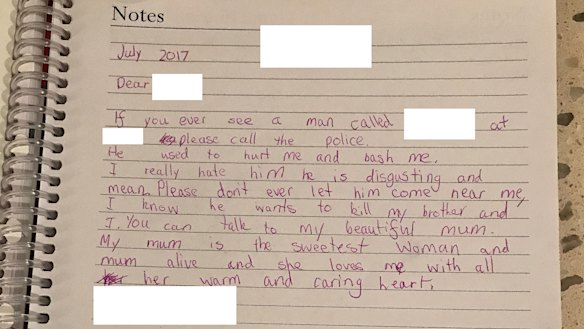 Notes
July 2017
Dear
If you ever see a man called at
please call the police.
He used to hurt me and bash me.
I really hate him he is disgusting and
mean. Please don't ever let him come near me,
I know he wants to kill my brother and
I. You can talk to my beautiful mum.
My mum is the sweetest woman and
mum alive and she loves me with all
her warm and caring heart.